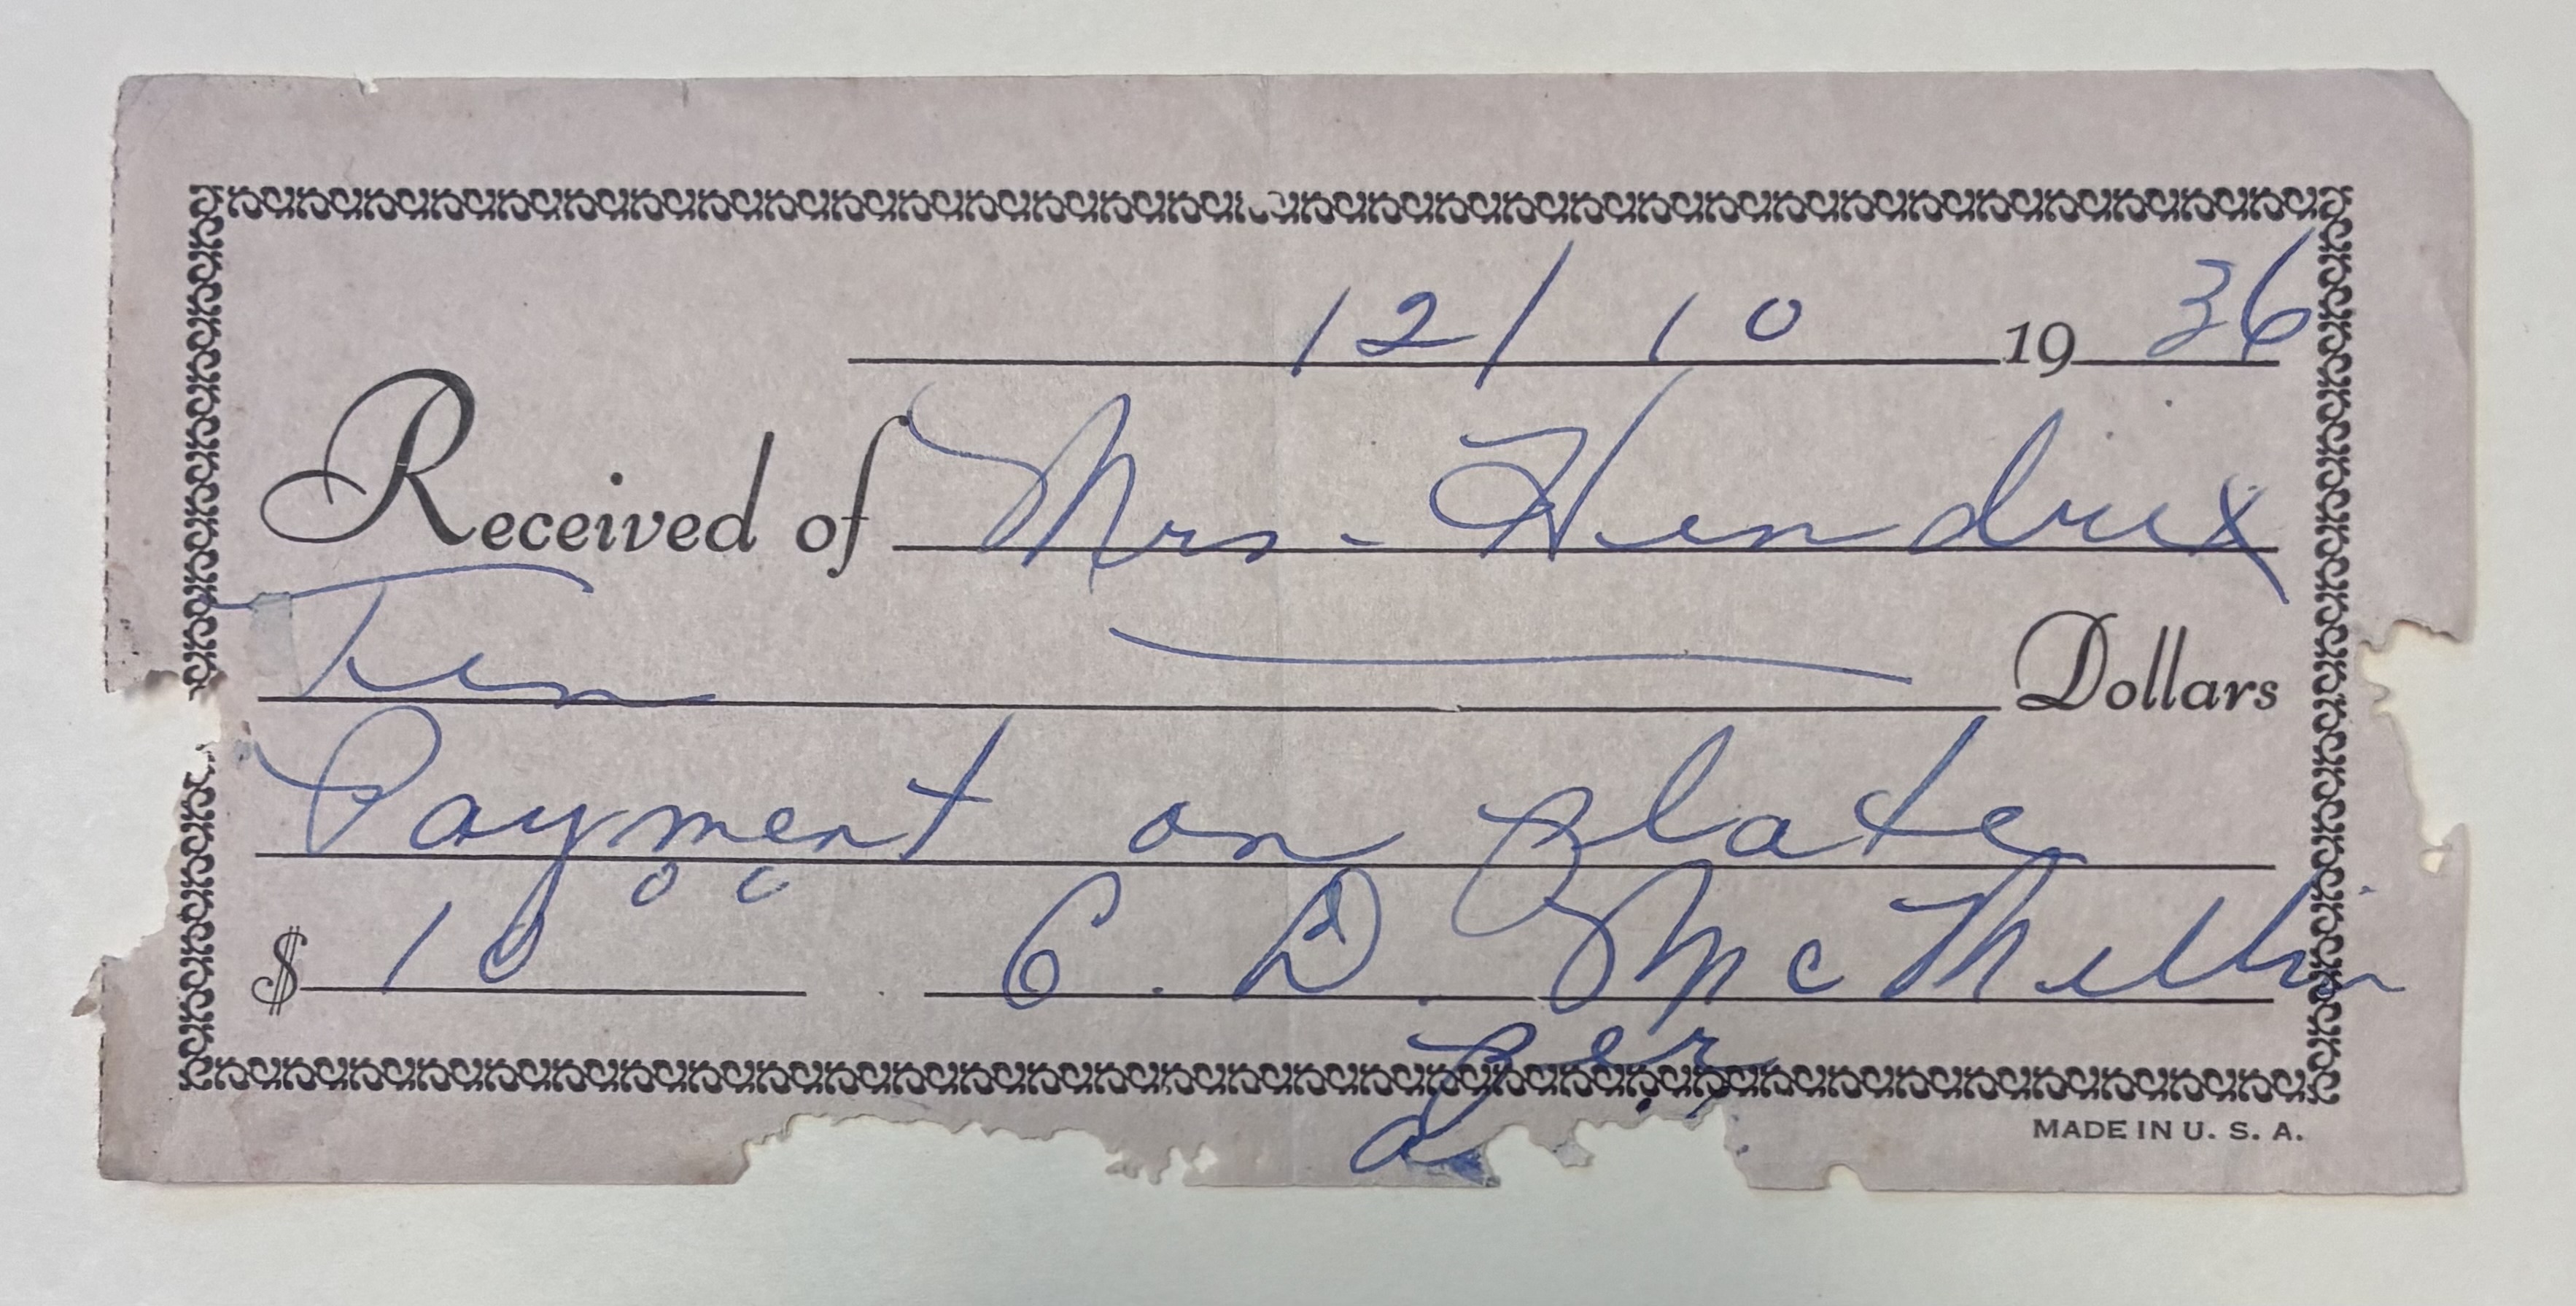 12/10 1936
Received of Mrs. Hendrix
Ten Dollars
Payment on plate
$ 10 00 C. D. McMillin
Per
MADE IN U. S. A.